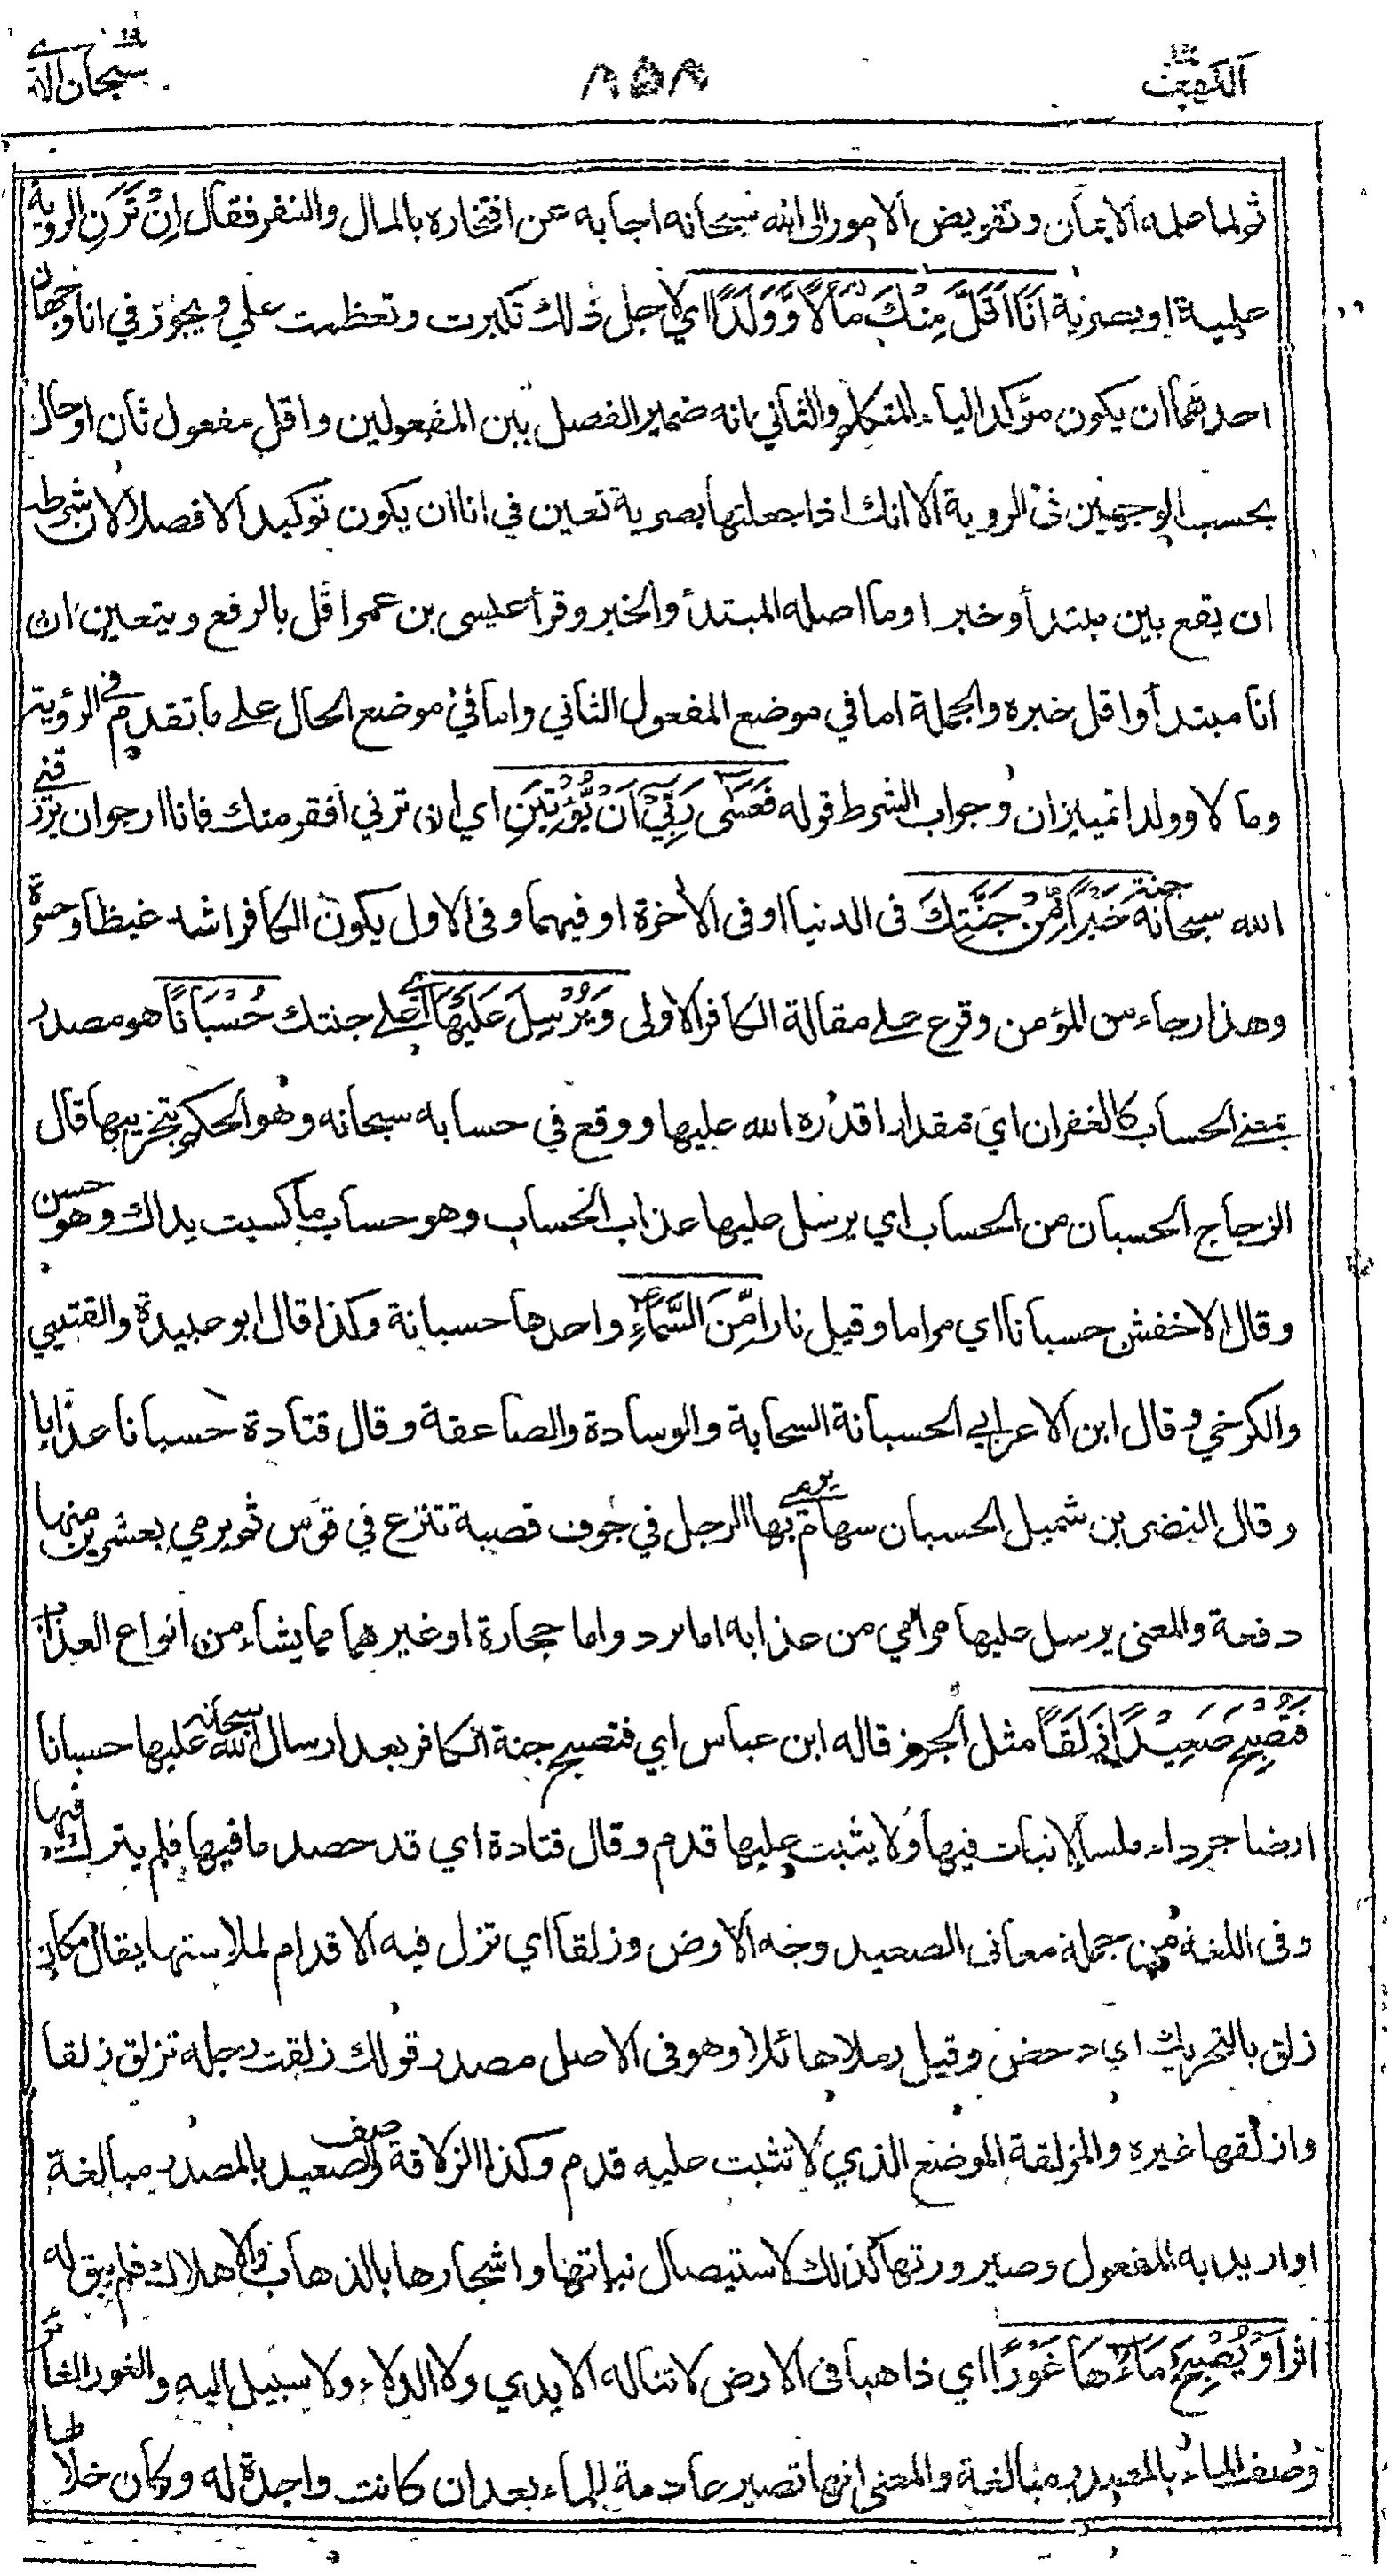 الكهف ٨٥٨ سبحان الذي
ثم لما علمه الايمان وتفويض الامور الى الله سبحانه اجابه عن افتخاره بالمال والنفر فقال اِنْ تَرَنِ الروية
علمية او بصرية اَنَا اَقَلَّ مِنْكَ مَالًا وَّوَلَدًا اي لاجل ذلك تكبرت وتعظمت علي ويجوز في انا وجهان
احدهما ان يكون مؤكدا لياء المتكلم والثاني انه ضمير الفصل بين المفعولين واقل مفعول ثان او حال
بحسب الوجهين في الروية الا انك اذا جعلتها بصرية تعين في انا ان يكون توكيدا لا فصلا لان شرطه
ان يقع بين مبتدأ وخبر او ما اصله المبتدأ والخبر وقرأ عيسى بن عمر اقل بالرفع ويتعين ان
انا مبتدأ واقل خبره والجملة اما في موضع المفعول الثاني واما في موضع الحال على ما تقدم في الرؤية
وما لا وولدا تمييزان وجواب الشرط قوله فَعَسٰى رَبِّيْٓ اَنْ يُّؤْتِيَنِ اي ان ترني افقر منك فانا ارجو ان يرزقني
الله سبحانه جنة خَيْرًا مِّنْ جَنَّتِكَ في الدنيا او في الاخرة او فيهما وفى الاول يكون الكافر اشد غيظا وحسرة
وهذا رجاء من المؤمن وقرع على مقالة الكافر الاولى وَيُرْسِلَ عَلَيْهَا اي على جنتك حُسْبَانًا هو مصدر
بمعنى الحساب كالغفران اي مقدارا قدره الله عليها ووقع في حسابه سبحانه وهو الحكم بتخريبها قال
الزجاج الحسبان من الحساب اي يرسل عليها عذاب الحساب وهو حساب ما كسبت يداك وهو حسن
وقال الاخفش حسبانا اي مراما وقيل نارا مِّنَ السَّمَآءِ واحدها حسبانة وكذا قال ابو عبيدة والقتيبي
والكرخي وقال ابن الاعرابي الحسبانة السحابة والوسادة والصاعقة وقال قتادة حسبانا عذابا
وقال النضر بن شميل الحسبان سهام يرمي بها الرجل في جوف قصبة تنزع في قوس ثم يرمي بعشرين منها
دفعة والمعنى يرسل عليها مرامي من عذابه اما برد واما حجارة او غيرهما مما يشاء من انواع العذاب
فَتُصْبِحَ صَعِيْدًا زَلَقًا مثل الجرز قاله ابن عباس اي فتصبح جنة الكافر بعد ارسال الله سبحانه عليها حسبانا
ارضا جرداء ملسا لا نبات فيها ولا يثبت عليها قدم وقال قتادة اي قد حصد ما فيها فلم يترك فيها
وفى اللغة من جملة معانى الصعيد وجه الارض وزلقا اي تزل فيه الاقدام لملاستها يقال مكان
زلق بالتحريك اي دحض وقيل رملا هائلا وهو فى الاصل مصدر قولك زلقت رجله تزلق زلقا
وازلقها غيره والمزلقة الموضع الذي لا تثبت عليه قدم وكذا الزلاقة وصف الصعيد بالمصدر مبالغة
او اريد به المفعول وصيرورتها كذلك لاستيصال نباتها واشجارها بالذهاب والاهلاك فلم يبق له
اثر اَوْ يُصْبِحَ مَآؤُهَا غَوْرًا اي ذاهبا فى الارض لا تناله الايدي ولا الدلاء ولا سبيل اليه والغور الغائر
وصف الماء بالمصدر مبالغة والمعنى انها تصير عادمة للماء بعد ان كانت واجدة له وكان خلالها